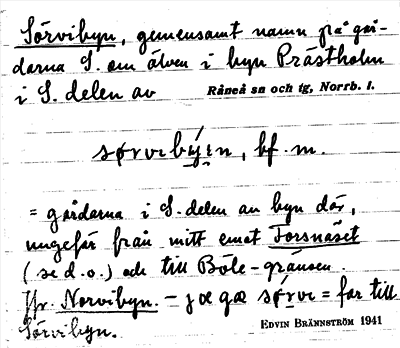 Sörvibyn, gemensamt namn på går-
darna S. om älven i byn Prästholm
i S. delen av Råneå sn och tg, Norrb. l.
sørvibýin, bf. m.
= gårdarna i S. delen av byn där,
ungefär från mitt emot Forsnäset
(se d. o.) och till Böle-gränsen.
Jfr. Norvibyn. – far till
Sörvibyn.
EDVIN BRÄNNSTRÖM 1941